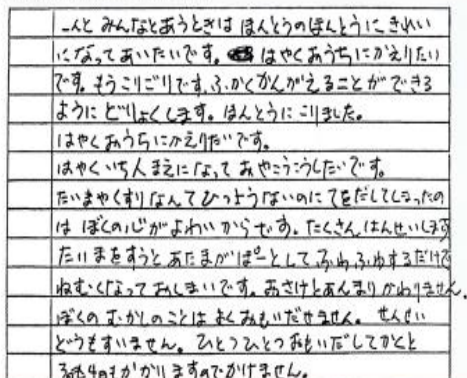 んと みんなとあうときは ほんとうのほんとうに きれい
になってあいたいです。 はやくおうちにかえりたい
です。もうこりごりです。ふかくかんがえることができる
ように どりょくします。ほんとうに こりました。
はやくおうちにかえりたいです。
はやくいち人まえになって おやこうこうしたいです。
たいまやくすりなんてひつようないのに てをだしてしまったの
は ぼくの心がよわいからです。たくさん はんせいします
たいまをすうと あたまがぽーとして ふわふわするだけで
ねむくなっておしまいです。おさけとあんまりかわりません。
ぼくの むかしのことは よくおもいだせません。せんせい
どうもすいません。ひとつひとつおもいだしてかくと
3日も4日もかかりますのでかけません。